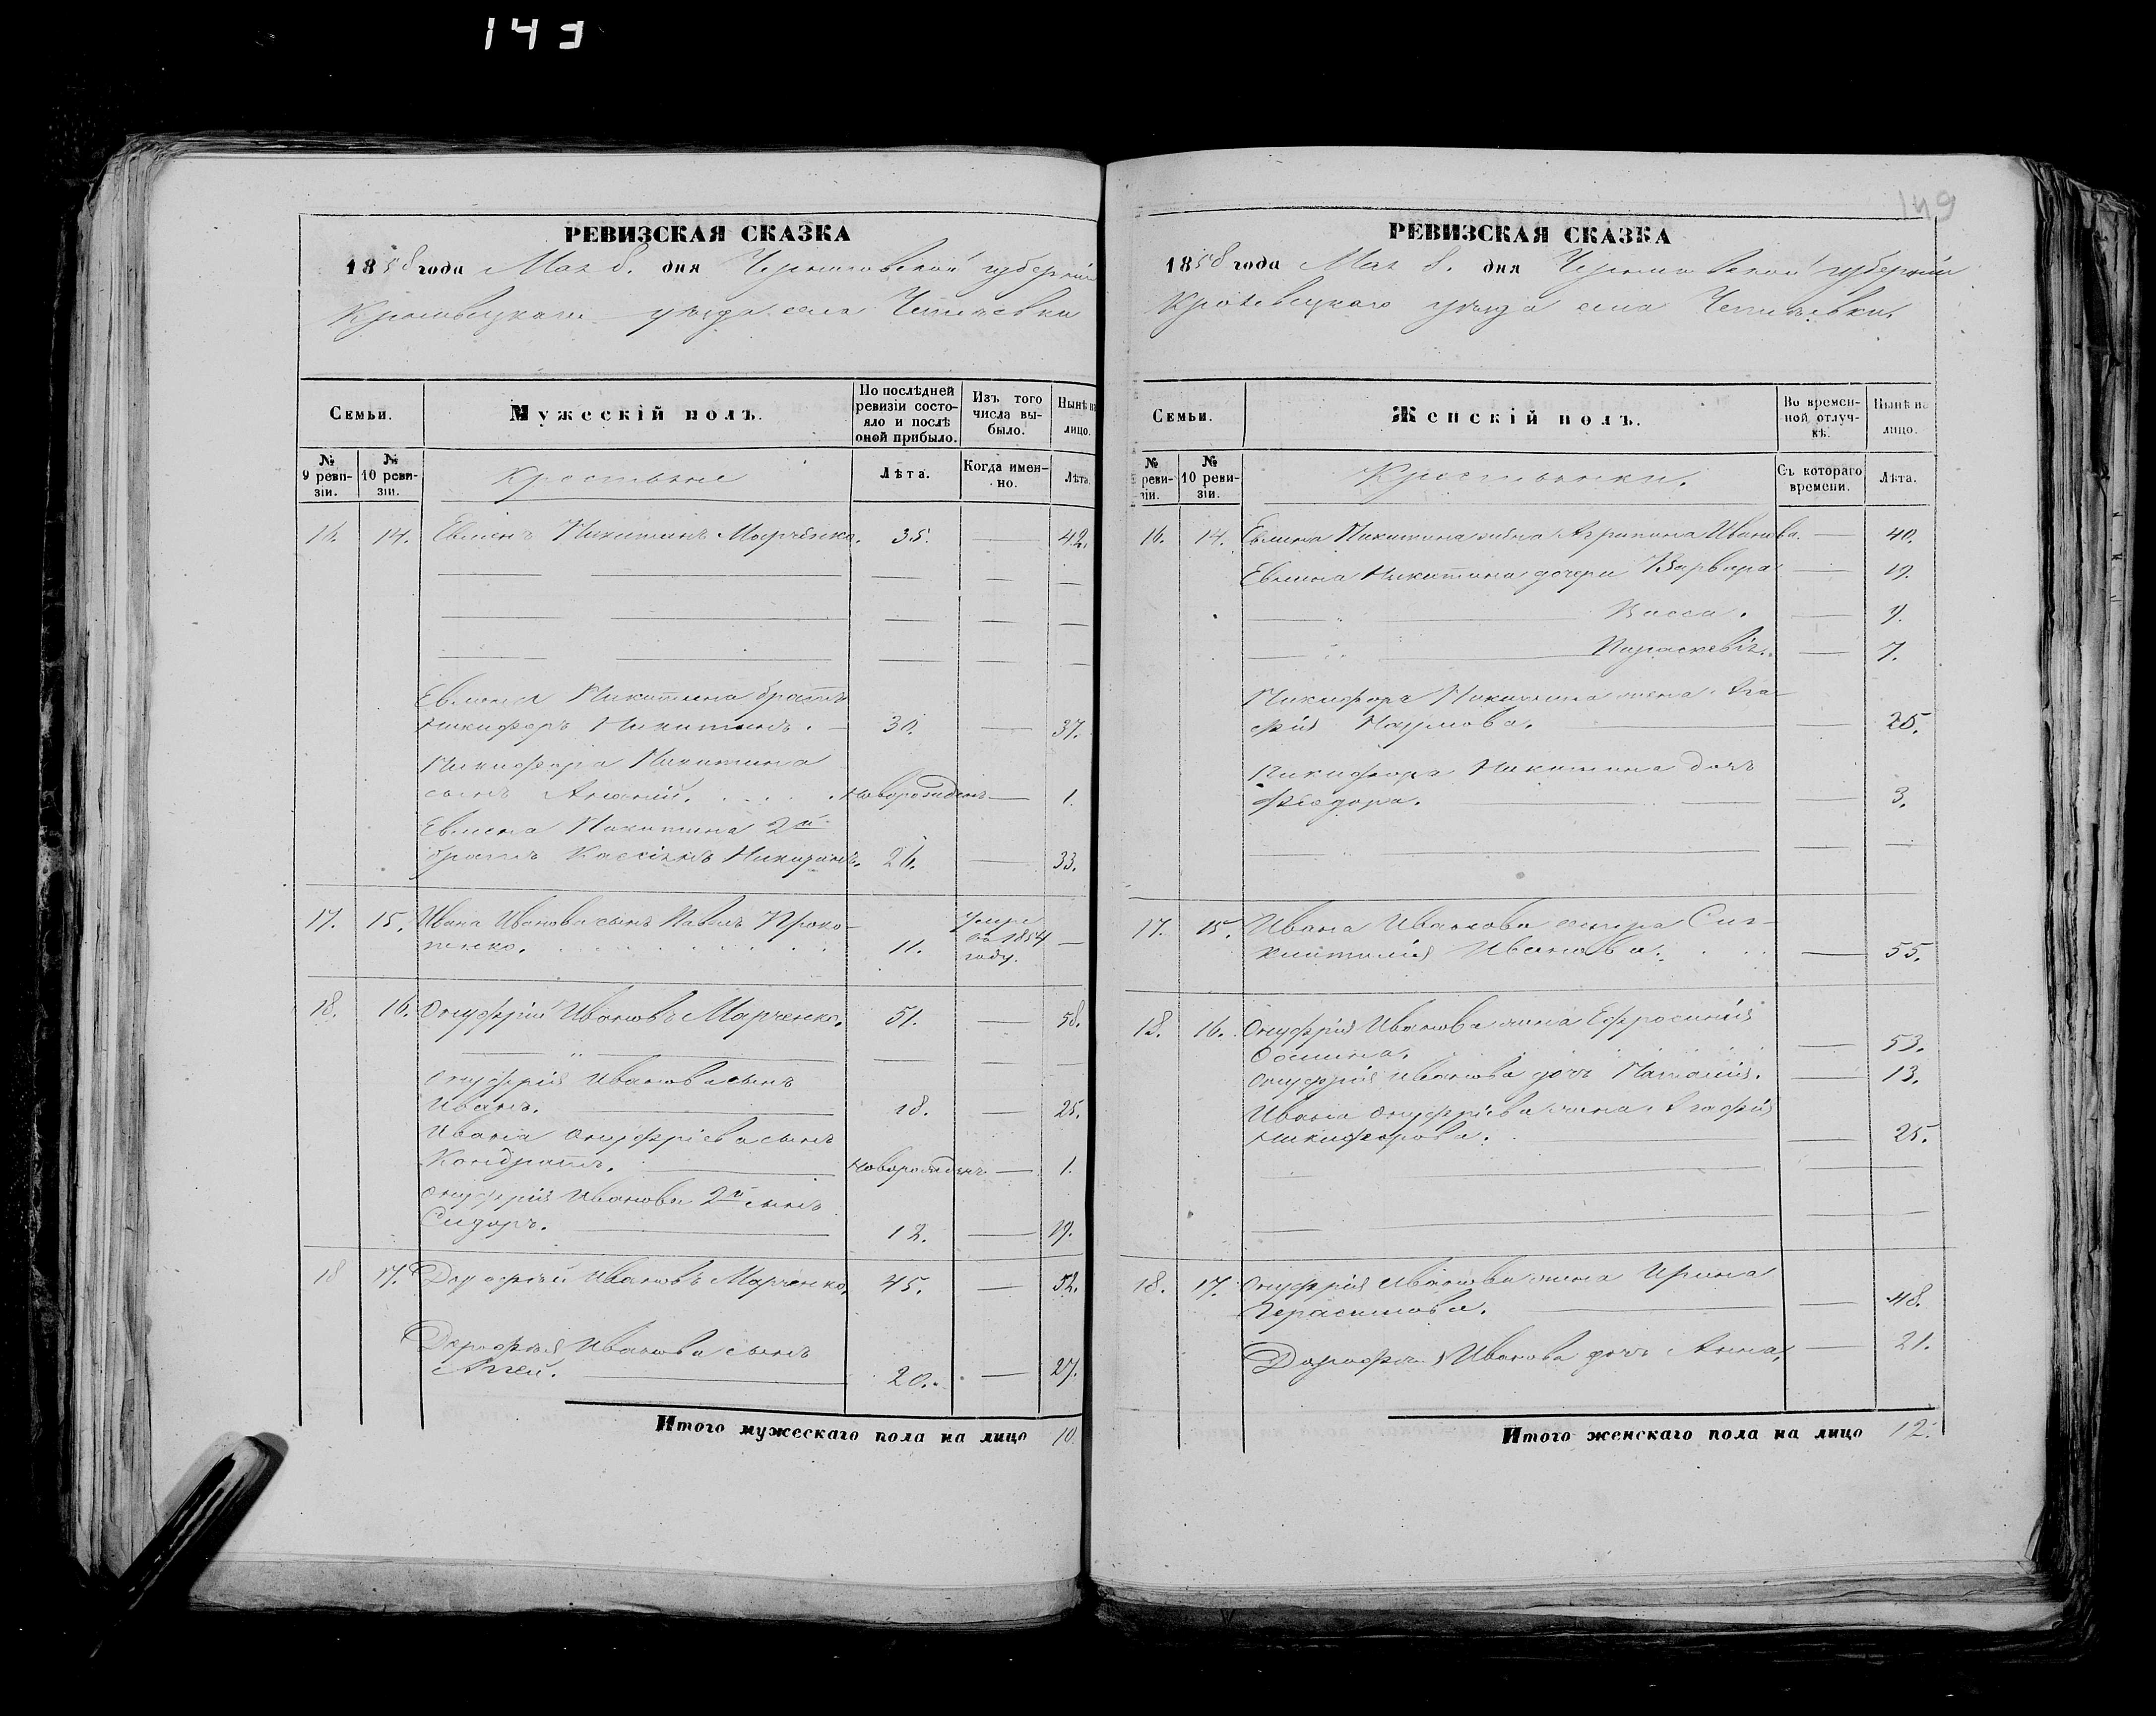 143
149
РЕВИЗСКАЯ СКАЗКА
1858 года Мая 8. дня Черниговской губерніи
Кролевецкаго уѣзда села
Семьи.
Мужескій полъ.
По послѣдней ревизіи состояло и послѣ оной прибыло.
Изъ того числа выбыло.
Нынѣ на лицо.
№ 9 ревизіи.
№ 10 ревизіи.
Крестьяне
Лѣта.
Когда именно.
Лѣта.
16. 14. Евмен Никитинъ Марченко. 35. — 42.
Евмена Никитина братъ
Никифоръ Никитинъ. — 30. — 37.
Никифора Никитина
сынъ Ананій. новорожденъ — 1.
Евмена Никитина 2й
братъ 26. — 33.
17. 15. Ивана Иванова сынъ Павелъ Проко-
пенко. 11. Умре въ 1854 году. —
18. 16. Онуфрій Ивановъ Марченко. 51. — 58.
Онуфрія Иванова сынъ
Иванъ. 18. — 25.
Ивана Онуфріева сынъ
Кондратъ. новорожденъ — 1.
Онуфрія Иванова 2й сынъ
Сидоръ. 12. — 19.
18 17. Дорофѣй Ивановъ Марченко. 45. — 52.
Дорофѣя Иванова сынъ
20. — 27.
Итого мужескаго пола на лицо 10.
РЕВИЗСКАЯ СКАЗКА
1858 года Мая 8. дня Черниговской губерніи
Кролевецкаго уѣзда села
Семьи.
Женскій полъ.
Во временной отлучкѣ.
Нынѣ на лицо.
№ ревизіи.
№ 10 ревизіи.
Крестьянки.
Съ котораго времени.
Лѣта.
16. 14. Евмена Никитина жена Агрипина Иванова. — 40.
Евмена Никитина дочери Варвара — 19.
Васса. — 9.
Параскевія. — 7.
Никифора Никитина жена Ага-
фія Наумова. — 25.
Никифора Никитина дочь
Феодора. — 3.
17. 15. Ивана Иванова сестра Син-
Иванова. — 55.
18. 16. Онуфрія Иванова жена Ефросинія
Фомина. — 53.
Онуфрія Иванова дочь Наталія. — 13.
Ивана Онуфріева жена Агафія
Никифорова. — 25.
18. 17. Онуфрія Иванова жена Ирина
Герасимова. — 48.
Дорофѣя Иванова дочь Анна, — 21.
Итого женскаго пола на лицо 12.